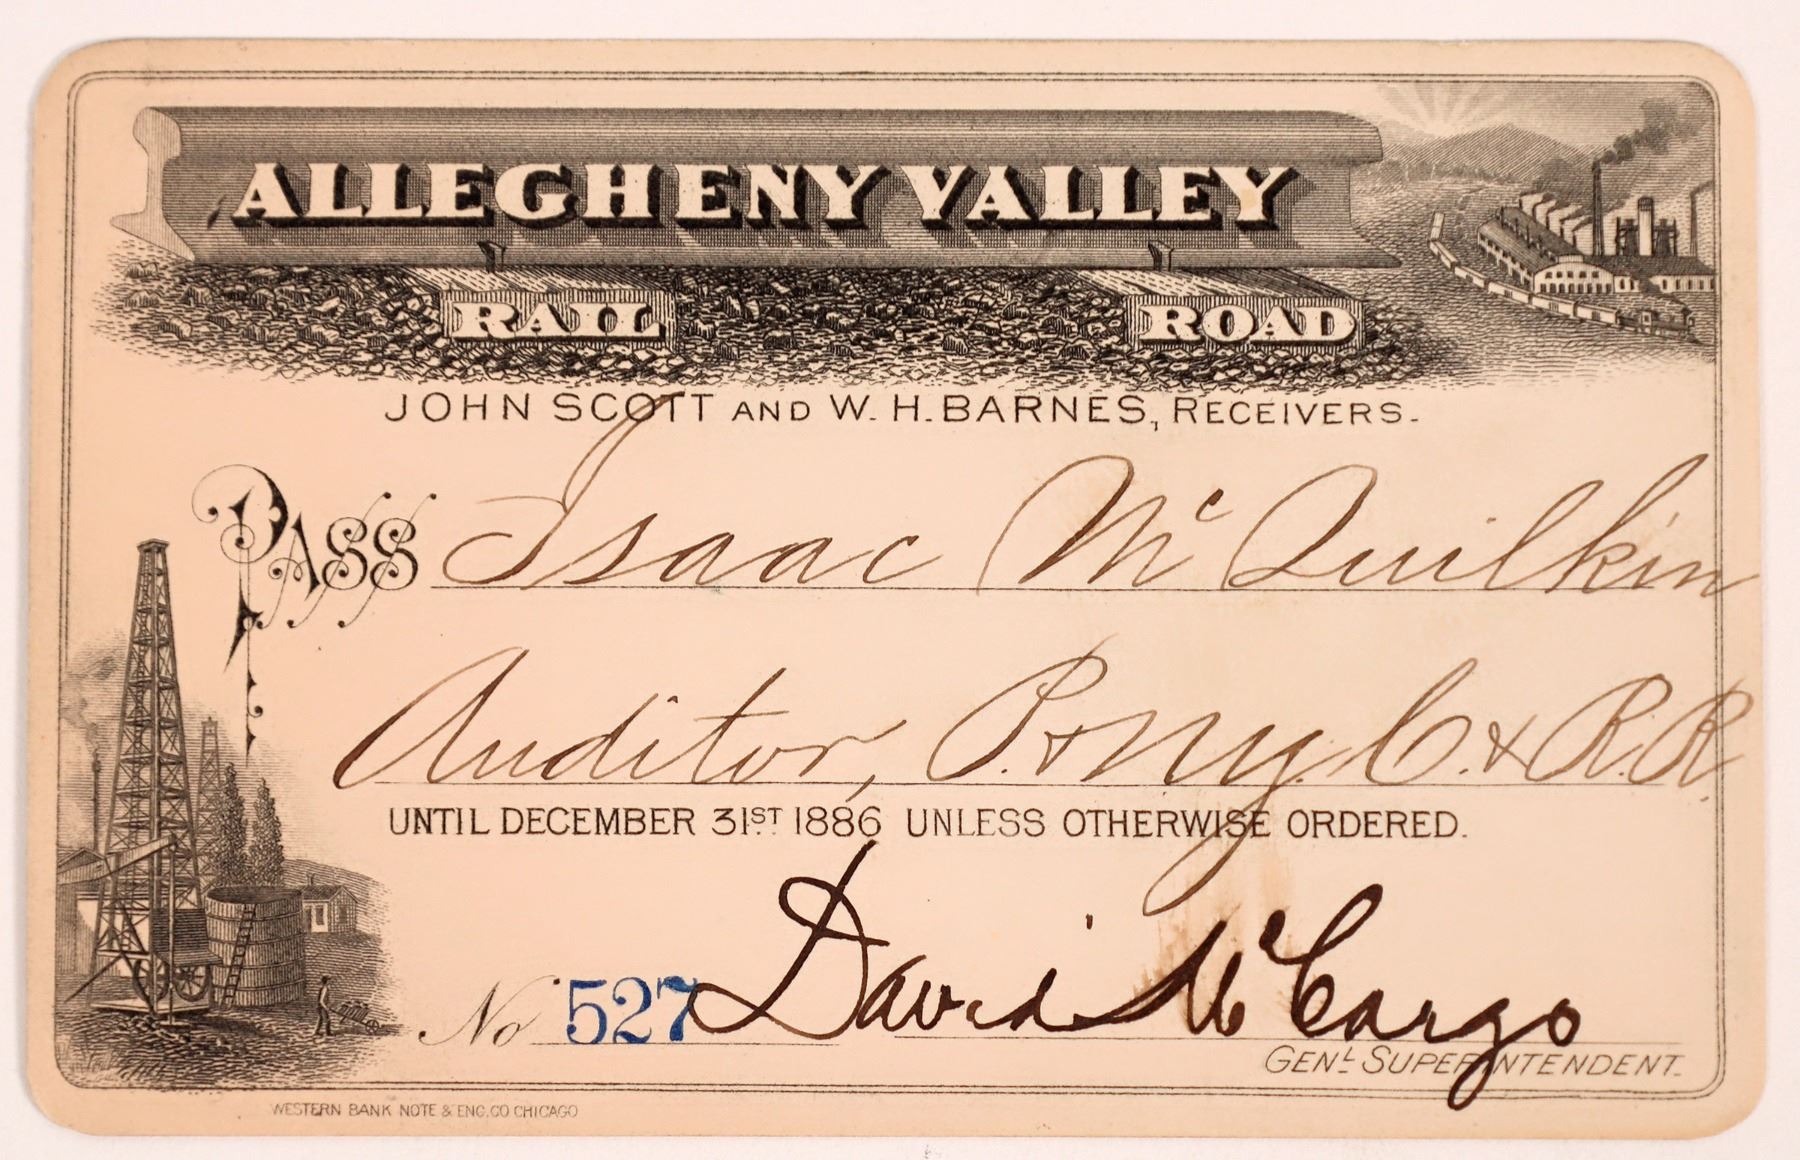 ALLEGHENY VALLEY
RAIL ROAD
JOHN SCOTT AND W. H. BARNES, RECEIVERS.
PASS Isaac McQuilkin
Auditor, P. & N.Y. C. & R.R.
UNTIL DECEMBER 31ST 1886 UNLESS OTHERWISE ORDERED.
No 527 David McCargo
GENL SUPERINTENDENT.
WESTERN BANK NOTE & ENG. CO CHICAGO